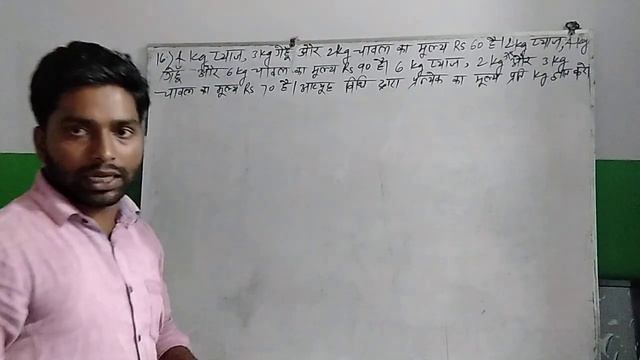 16) 4 kg प्याज, 3 kg गेहूँ और 2 kg चावल का मूल्य Rs 60 है। 2 kg प्याज, 4 kg
गेहूँ और 6 kg चावल का मूल्य Rs 90 है। 6 kg प्याज, 2 kg और 3 kg
चावल का मूल्य Rs 70 है। आव्यूह विधि द्वारा प्रत्येक का मूल्य प्रति kg ज्ञात करो